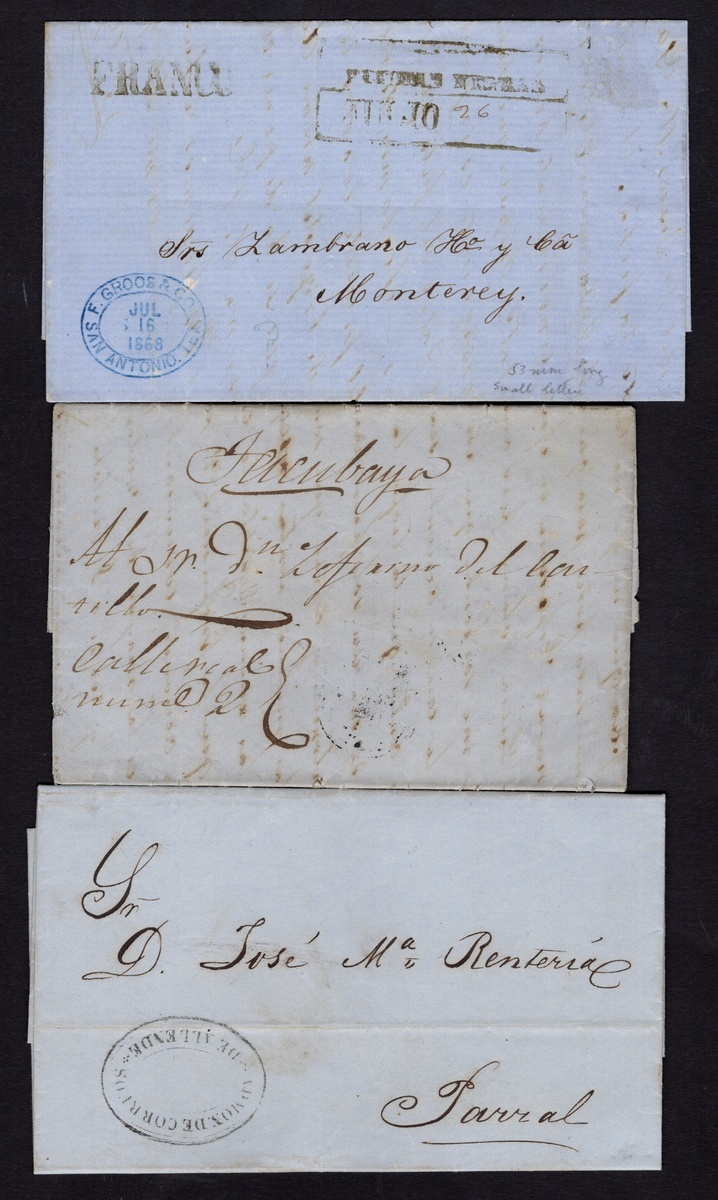 FRANCO
PIEDRAS NEGRAS
JULIO 26
Srs Zambrano Ho y Cã
Monterey.
F. GROOS & CO.
JUL
16
1868
SAN ANTONIO, TEX.
53 mm long
small letter
Tacubaya
Al Sr. Dn Zeferino del Cas-
tillo
Calle real
num 2
Sr
D. José Ma Rentería
ADMON. DE CORREOS
DE ALLENDE
Parral